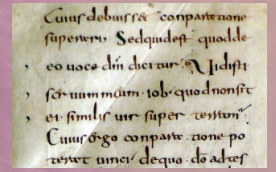 Cuius debuisset conparatione
superare. Sed quid est quod de
eo uoce dni dicitur. Uidisti
seruum meum iob. quod non sit
ei similis uir super terram.
Cuius ergo conparatione po
teret uinci. de quo do adtes